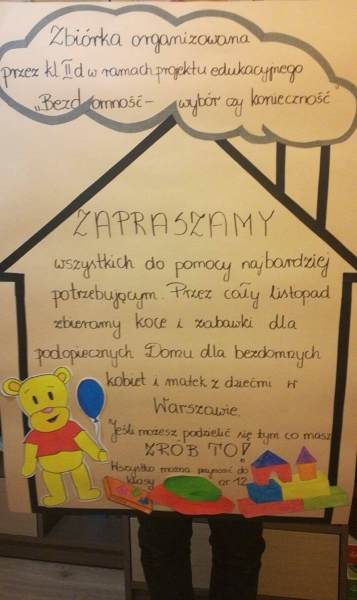 Zbiórka organizowana
przez kl II d w ramach projektu edukacyjnego
„Bezdomność – wybór czy konieczność"
ZAPRASZAMY
wszystkich do pomocy najbardziej
potrzebującym. Przez cały listopad
zbieramy koce i zabawki dla
podopiecznych Domu dla bezdomnych
kobiet i matek z dziećmi w
Warszawie.
Jeśli możesz podzielić się tym co masz
ZRÓB TO!
Wszystko można przynosić do
klasy nr 12